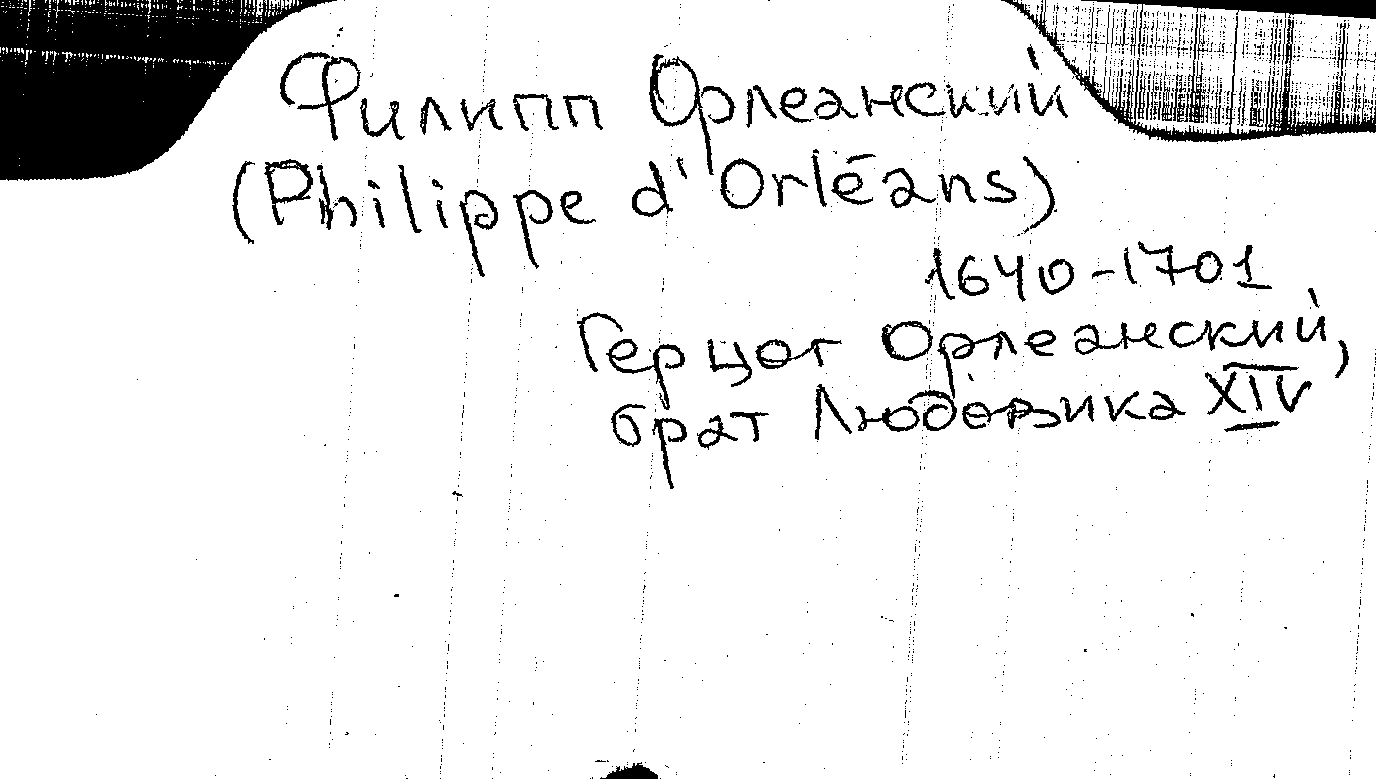 Филипп Орлеанский
(Philippe d'Orléans)
1640-1701
Герцог Орлеанский,
брат Людовика XIV